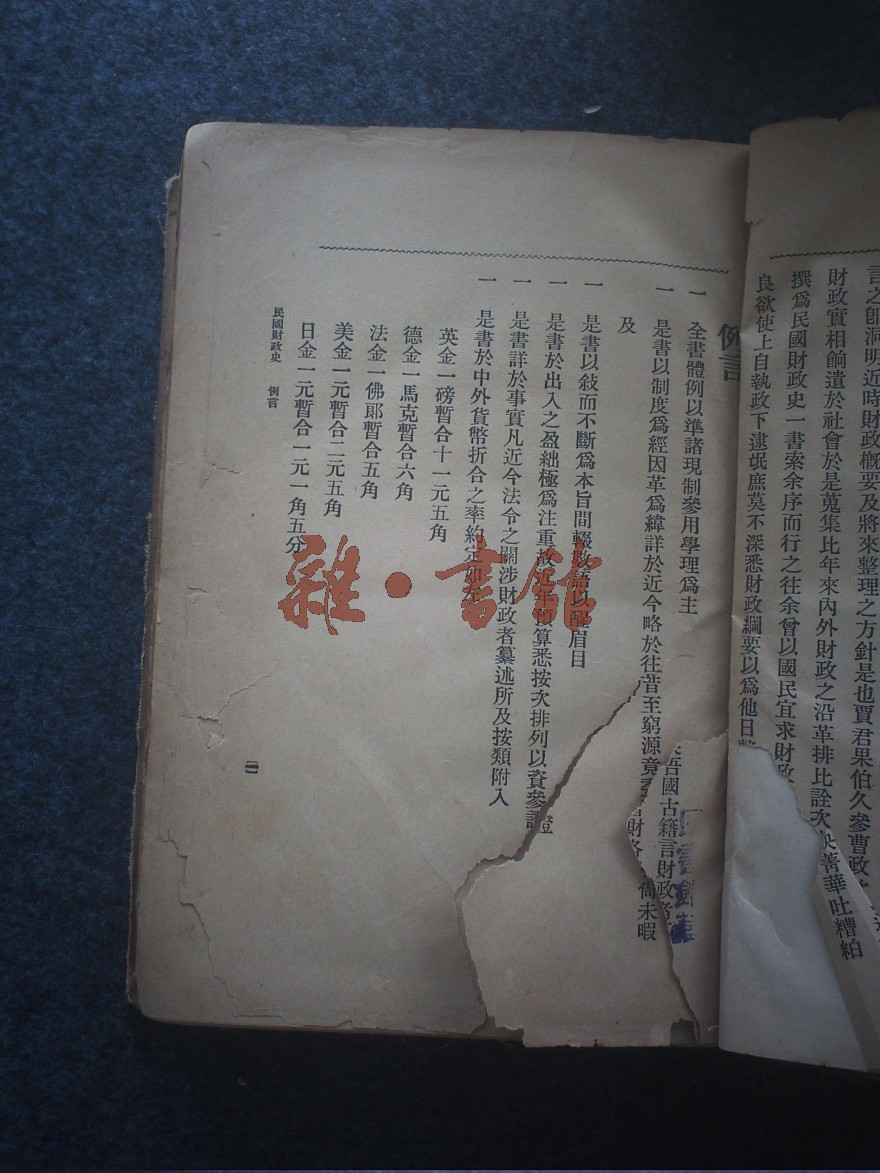 言之卽洞明近時財政槪要及將來整理之方針是也賈君果伯久參曹政
財政實相餉遺於社會於是蒐集比年來內外財政之沿革排比詮次 菁華吐糟粕
撰爲民國財政史一書索余序而行之往余曾以國民宜求財政
良欲使上自執政下逮氓庶莫不深悉財政綱要以爲他日
例言
一 全書體例以準諸現制參用學理爲主
一 是書以制度爲經因革爲緯詳於近今略於往昔至窮源竟 吾國古籍言財政者 財 尙未暇
及
一 是書以敍而不斷爲本旨間輟數語以醒眉目
一 是書於出入之盈絀極爲注重故近年預算悉按次排列以資參證
一 是書詳於事實凡近今法令之關涉財政者纂述所及按類附入
一 是書於中外貨幣折合之率約定如左
英金一磅暫合十一元五角
德金一馬克暫合六角
法金一佛郞暫合五角
美金一元暫合二元五角
日金一元暫合一元一角五分
民國財政史 例言
一
雜·書館